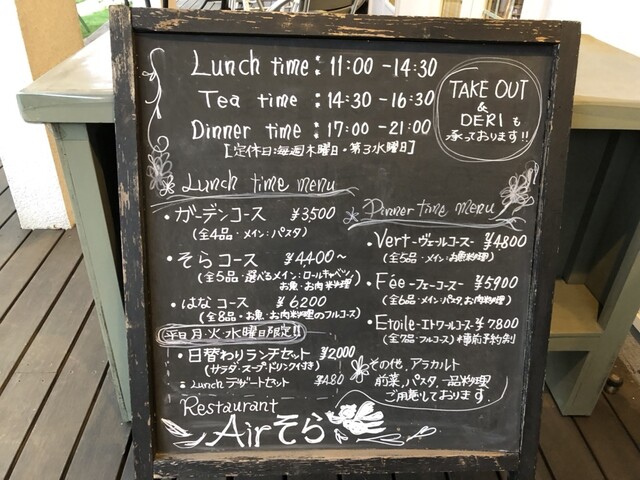 Lunch time: 11:00 -14:30
Tea time: 14:30 -16:30
Dinner time: 17:00 -21:00
[定休日:毎週木曜日・第3水曜日]
TAKE OUT
&
DERI も
承っております!!
Lunch time menu
・ガーデンコース ¥3500
(全4品・メイン:パスタ)
・そらコース ¥4400~
(全5品・選べるメイン:ロールキャベツ
お魚・お肉料理)
・はなコース ¥6200
(全8品・お魚・お肉料理のフルコース)
平日月・火・水曜日限定!!
・日替わりランチセット ¥2,000
(サラダ・スープ・ドリンク付き)
Lunchデザートセット ¥480
Dinner time menu
・Vert-ヴェールコース- ¥4800
(全5品・メイン:お魚料理)
・Fée-フェーコース- ¥5900
(全6品・メイン:パスタ,お肉料理)
・Etoile-エトワールコース ¥7800
(全7品・フルコース)*事前予約制
その他、アラカルト
前菜、パスタ、一品料理
ご用意しております。
Restaurant
Airそら